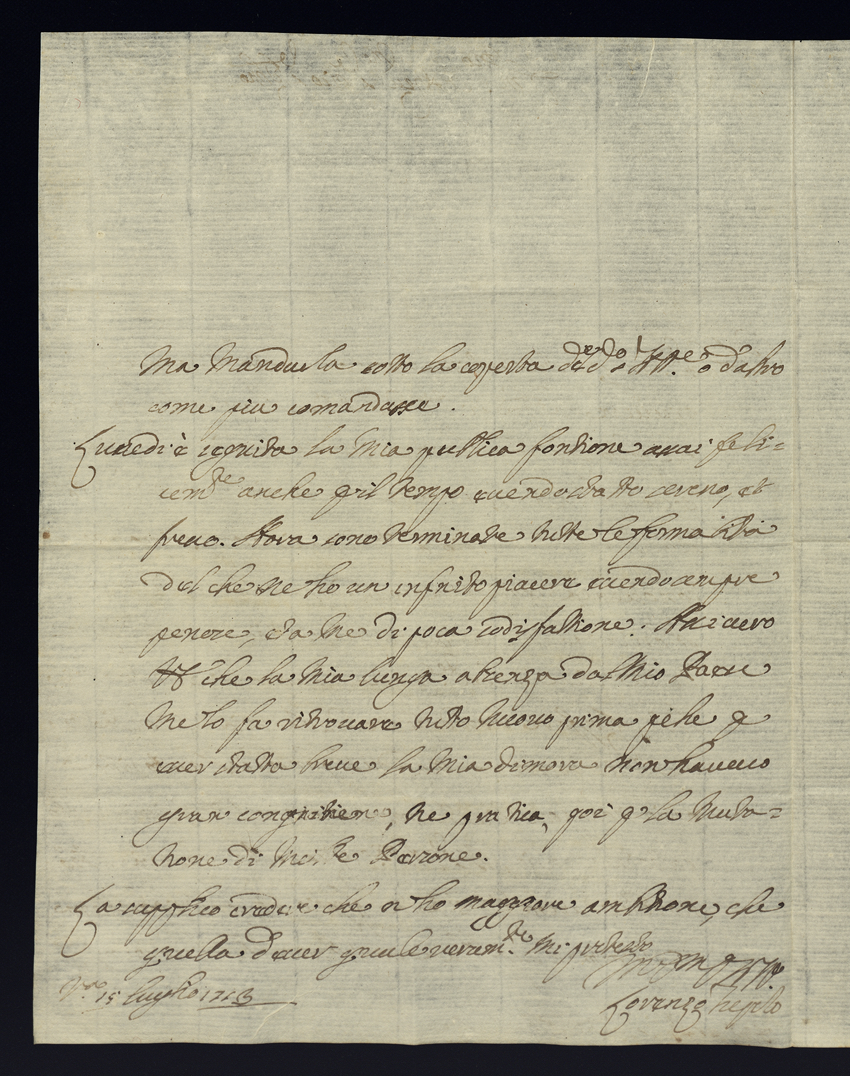 Ma Mandarla sotto la coperta d. o d'altro
come piu comandasse.
Lunedi è seguita la Mia publica fontione assai feli=
cem.te anche p il tempo essendo stato sereno, et
fresco. Hora sono terminate tutte le formalità
del che ne ho un infinito piacere essendo sempre
penose, e da me di poca sodisfattione. 
che la Mia lunga absenza dal Mio Paese
me lo fa ritrovare tutto nuovo prima p che p
esser stata breve la Mia dimora non havevo
gran cognitione, ne pratica, poi p la Muta=
tione di Molte Persone.
La supplico credere che non ho maggiore ambitione, che
quella d'esser quale veram.te mi protesto
15 Luglio 1713
Lorenzo Tiepolo